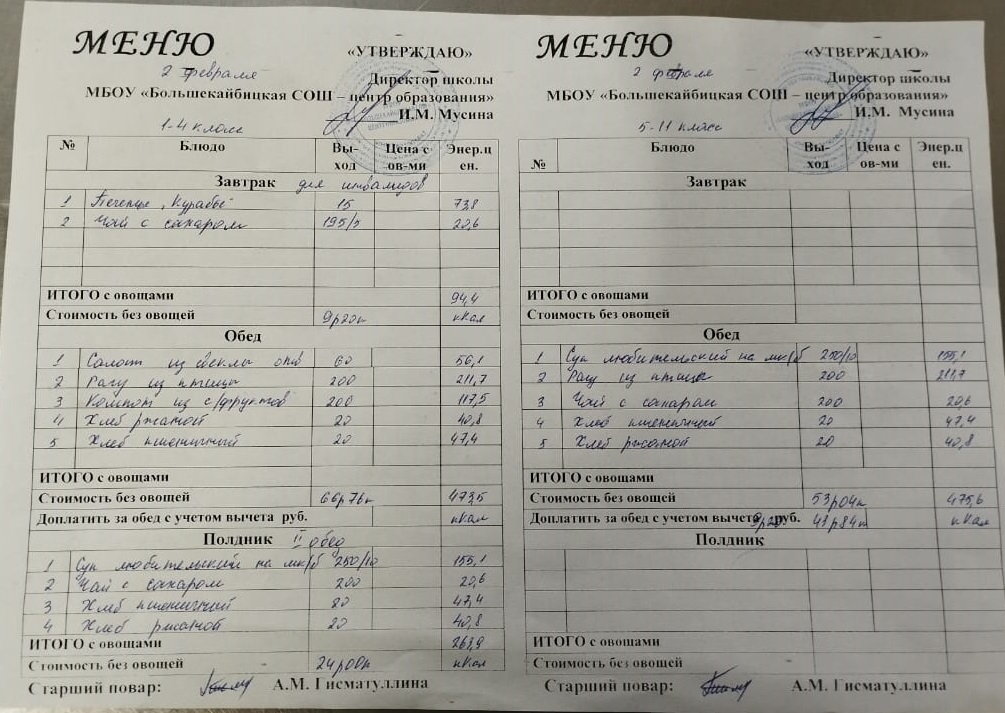 МЕНЮ
«УТВЕРЖДАЮ»
2 февраля
Директор школы
МБОУ «Большекайбицкая СОШ – центр образования»
И.М. Мусина
1-4 класс
№ Блюдо Вы-ход Цена с ов-ми Энер.ц ен.
Завтрак для инвалидов
1 Печенье „Курабье" 15 73,8
2 Чай с сахаром 195/5 20,6
ИТОГО с овощами 94,4
Стоимость без овощей 9р20к кКал
Обед
1 Салат из свеклы 60 56,1
2 Рагу из птицы 200 211,7
3 Компот из с/фруктов 200 117,5
4 Хлеб ржаной 20 40,8
5 Хлеб пшеничный 20 47,4
ИТОГО с овощами
Стоимость без овощей 66р76к 473,5
Доплатить за обед с учетом вычета руб. кКал
Полдник II обед
1 Суп любительский на мк/б 250/10 155,1
2 Чай с сахаром 200 20,6
3 Хлеб пшеничный 20 47,4
4 Хлеб ржаной 20 40,8
ИТОГО с овощами 263,9
Стоимость без овощей 24р00к кКал
Старший повар: А.М. Гисматуллина
МЕНЮ
«УТВЕРЖДАЮ»
2 февраля
Директор школы
МБОУ «Большекайбицкая СОШ – центр образования»
И.М. Мусина
5-11 класс
№ Блюдо Вы-ход Цена с ов-ми Энер.ц ен.
Завтрак
ИТОГО с овощами
Стоимость без овощей
Обед
1 Суп любительский на мк/б 250/10 155,1
2 Рагу из птицы 200 211,7
3 Чай с сахаром 200 20,6
4 Хлеб пшеничный 20 47,4
5 Хлеб ржаной 20 40,8
ИТОГО с овощами
Стоимость без овощей 53р04к 475,6
Доплатить за обед с учетом вычета 9р20 руб. 43р84к кКал
Полдник
ИТОГО с овощами
Стоимость без овощей
Старший повар: А.М. Гисматуллина